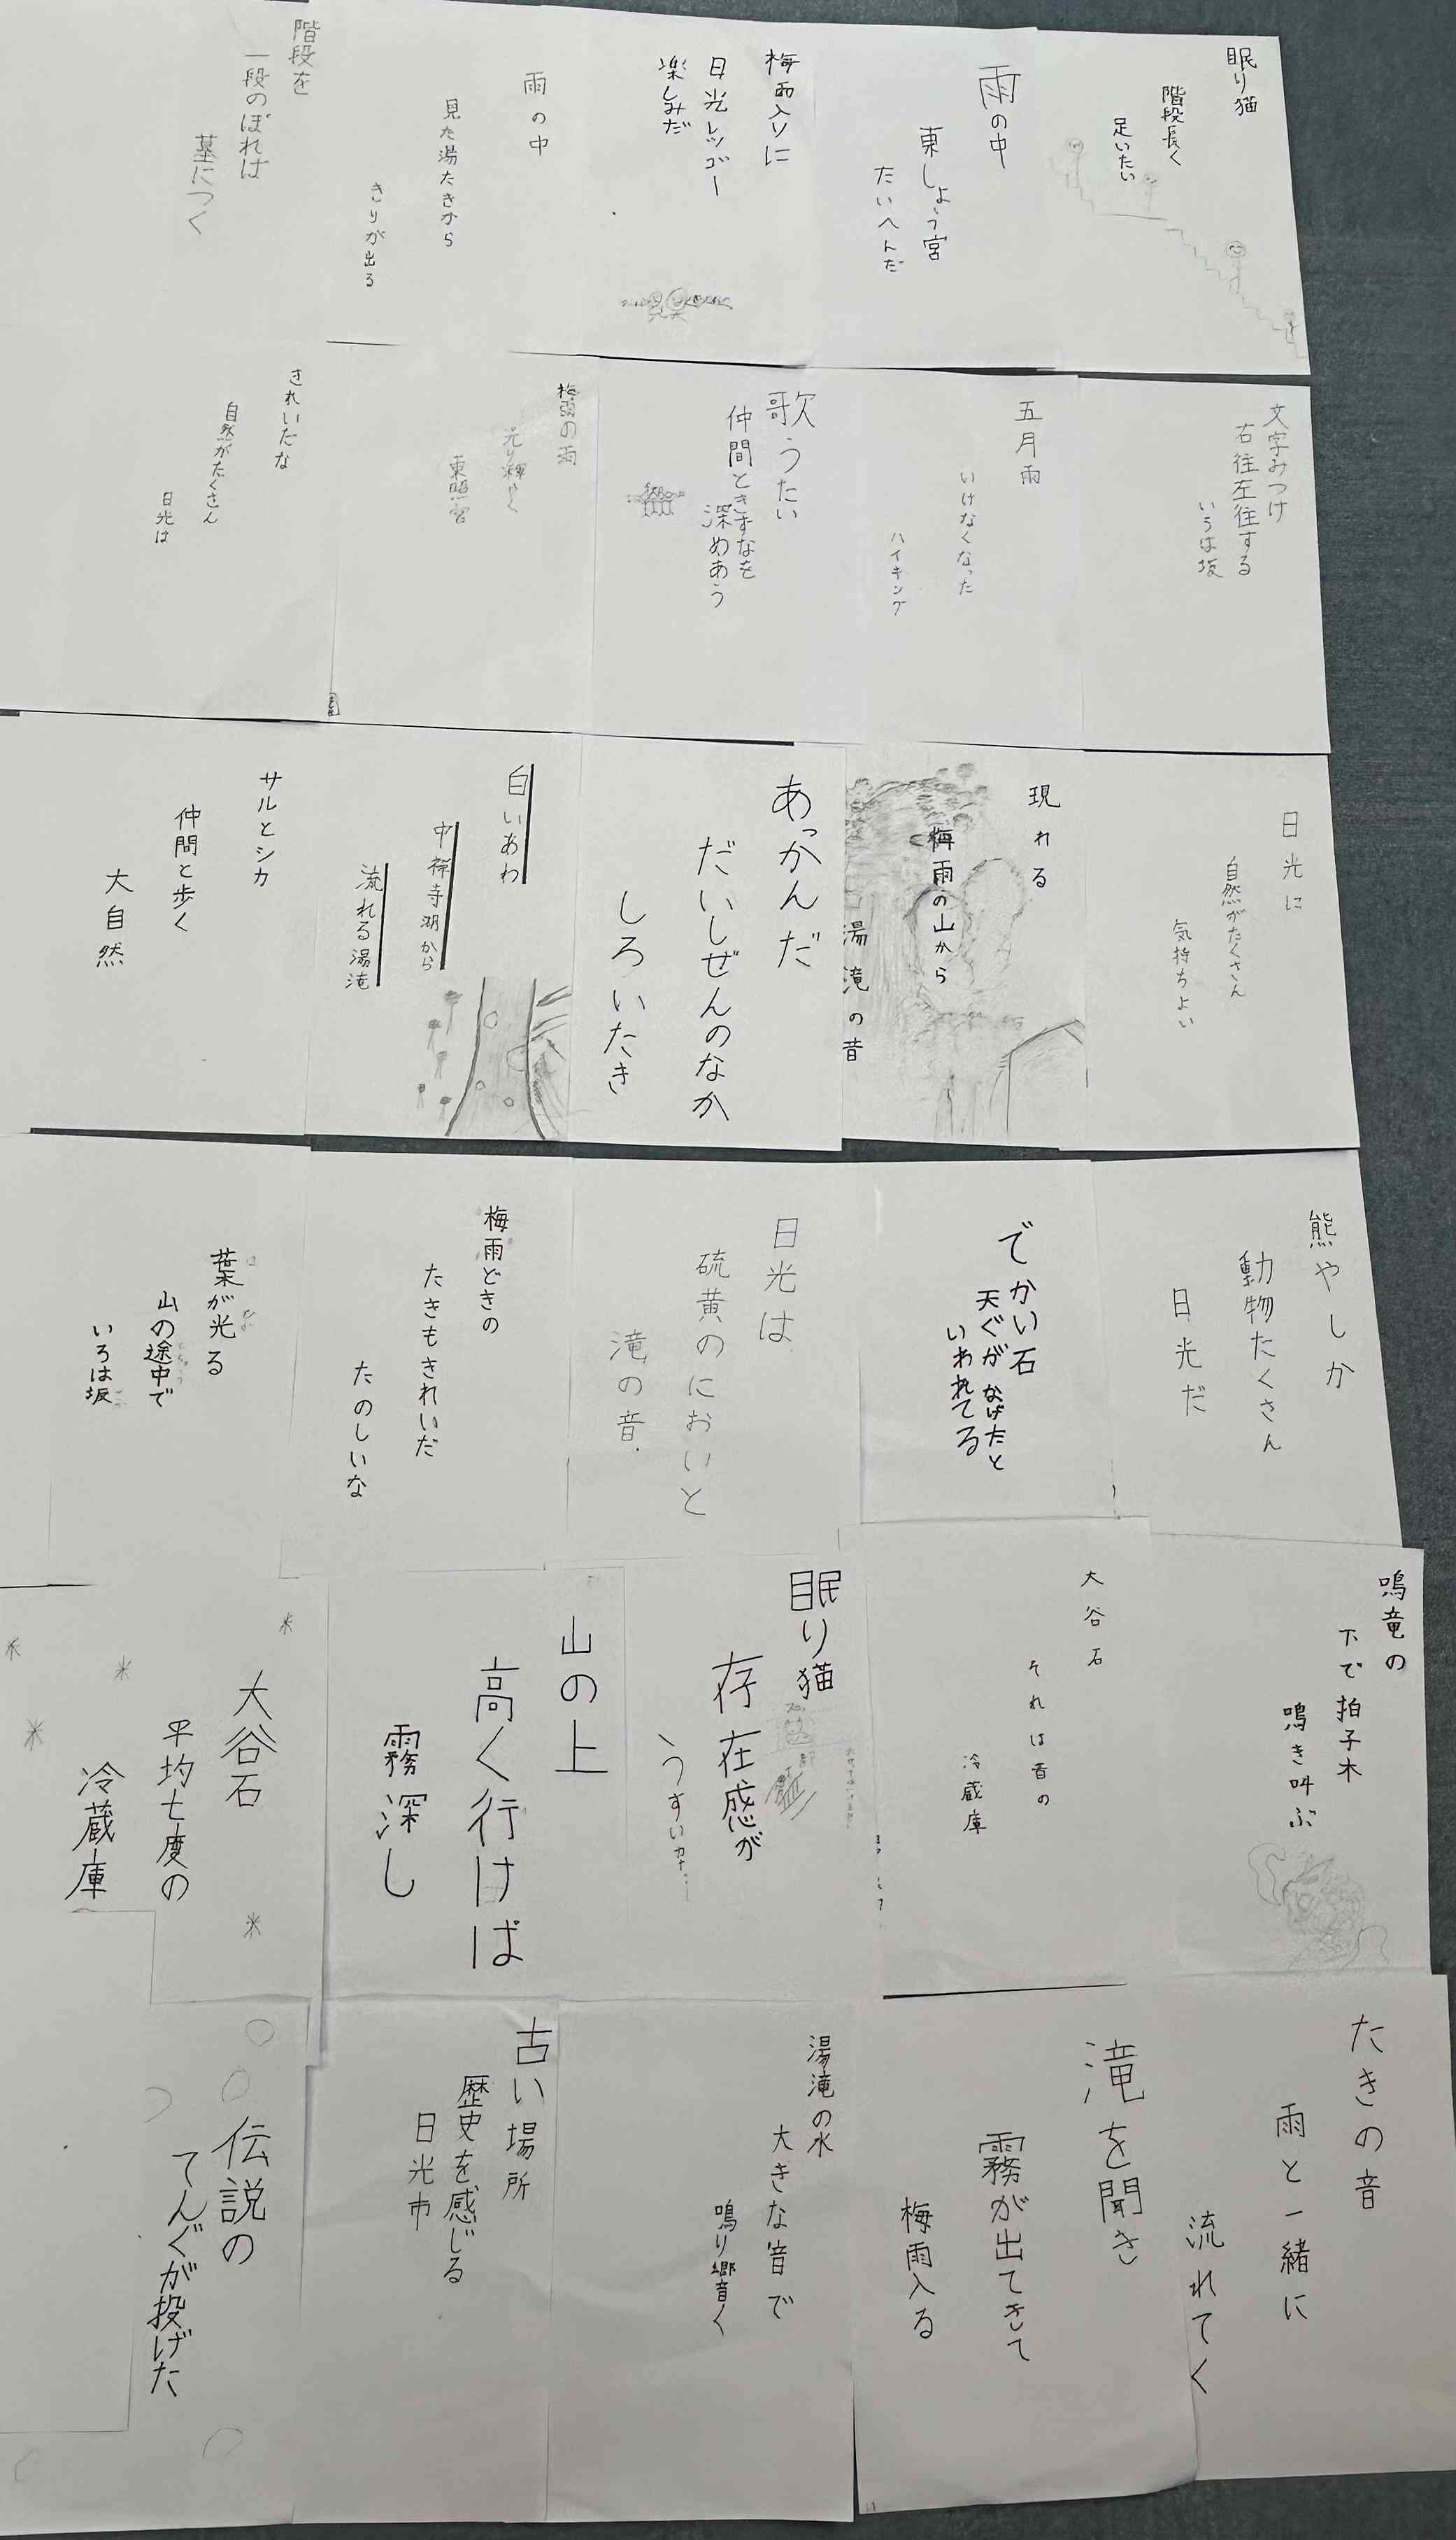 眠り猫
階段長く
足いたい
雨の中
東しょう宮
たいへんだ
梅雨入りに
日光レッツゴー
楽しみだ
雨の中
見た湯たきから
きりが出る
階段を
一段のぼれは
墓につく
文字みつけ
右往左往する
いろは坂
五月雨
いけなくなった
ハイキング
歌うたい
仲間ときずなを
深めあう
梅雨の雨
光り輝やく
東照宮
きれいだな
自然がたくさん
日光は
日光に
自然がたくさん
気持ちよい
現れる
梅雨の山から
湯滝の音
あっかんだ
だいしぜんのなか
しろいたき
白いあわ
中禅寺湖から
流れる湯滝
サルとシカ
仲間と歩く
大自然
熊やしか
動物たくさん
日光だ
でかい石
天ぐがなげたと
いわれてる
日光は
硫黄のにおいと
滝の音.
梅雨どきの
たきもきれいだ
たのしいな
葉が光る
山の途中で
いろは坂
鳴竜の
下で拍子木
鳴き叫ぶ
大谷石
それは昔の
冷蔵庫
眠り猫
存在感が
うすいカナ…
山の上
高く行けば
霧深し
大谷石
平均七度の
冷蔵庫
たきの音
雨と一緒に
流れてく
滝を聞き
霧が出てきて
梅雨入る
湯滝の水
大きな音で
鳴り響く
古い場所
歴史を感じる
日光市
伝説の
てんぐが投げた